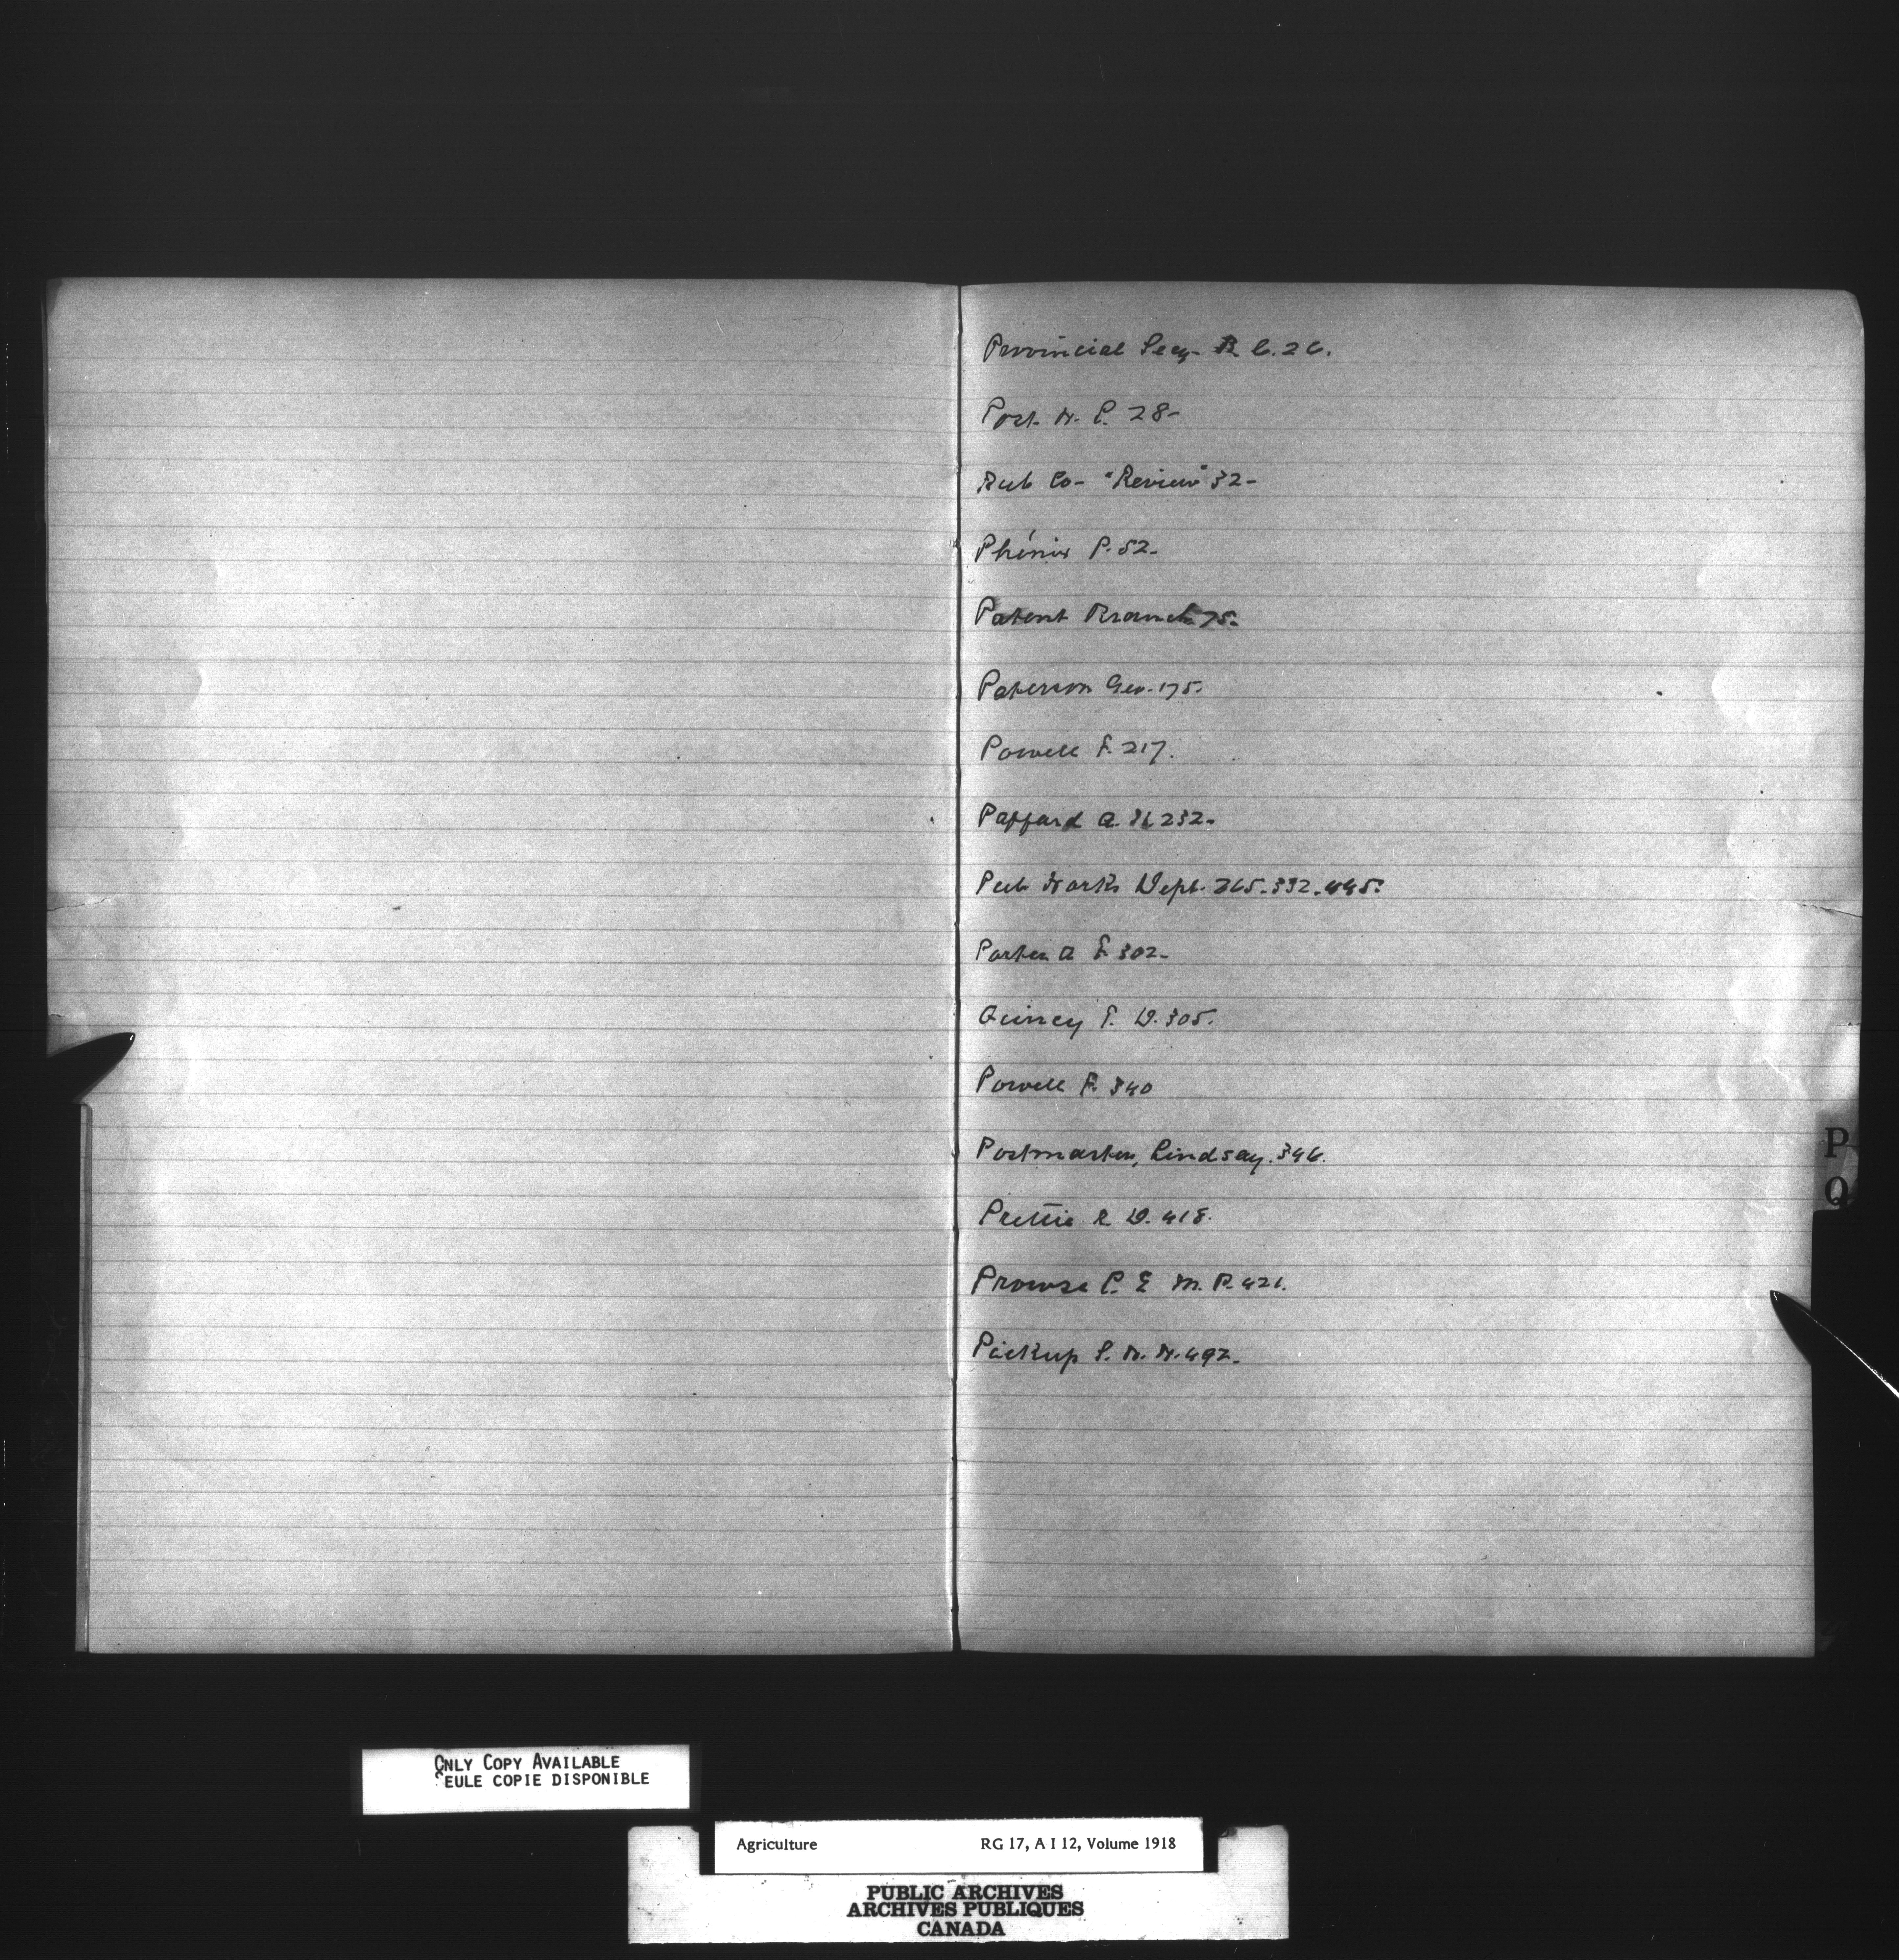 Provincial Secy- B C. 26.
Post. W. P. 28-
Pub Co- "Review" 32-
Phénix P. 52-
Patent Branch 75.
Paterson Geo. 175.
Powell F. 217.
Paffard A. H 232-
Pub Works Dept. 265-332-445.
Porter A F 302-
Quincy S. D. 305.
Powell F. 340
Postmaster, Lindsay. 346.
Prettie R D. 418.
Prowse L. E M. P. 421.
Pickup S. W. W. 492.
P
Q
ONLY COPY AVAILABLE
SEULE COPIE DISPONIBLE
Agriculture RG 17, A I 12, Volume 1918
PUBLIC ARCHIVES
ARCHIVES PUBLIQUES
CANADA